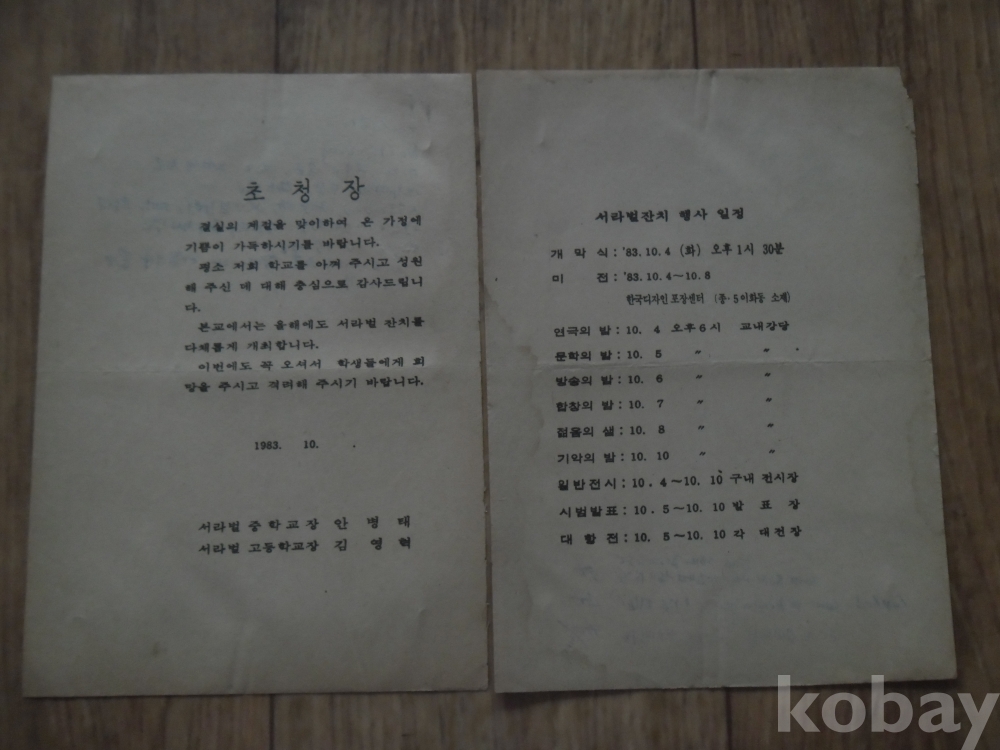 초 청 장
결실의 계절을 맞이하여 온 가정에
기쁨이 가득하시기를 바랍니다.
평소 저희 학교를 아껴 주시고 성원
해 주신 데 대해 충심으로 감사드립니
다.
본교에서는 올해에도 서라벌 잔치를
다채롭게 개최합니다.
이번에도 꼭 오셔서 학생들에게 희
망을 주시고 격려해 주시기 바랍니다.
1983. 10. .
서라벌 중학교장 안 병 태
서라벌 고등학교장 김 영 혁
서라벌잔치 행사 일정
개 막 식 : '83.10.4 (화) 오후 1시 30분
미 전 : '83.10.4~10.8
한국디자인 포장센터 (종·5 이화동 소재)
연극의 밤 : 10. 4 오후 6 시 교내강당
문학의 밤 : 10. 5 〃 〃
방송의 밤 : 10. 6 〃 〃
합창의 밤 : 10. 7 〃 〃
젊음의 샘 : 10. 8 〃 〃
기악의 밤 : 10. 10 〃 〃
일반전시 : 10. 4~10. 10 구내 전시장
시범발표 : 10. 5~10. 10 발 표 장
대 항 전 : 10. 5~10. 10 각 대전장
kobay